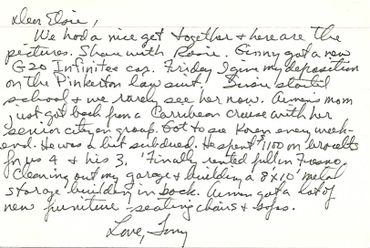 Dear Elsie,
We had a nice get together & here are the
pictures. Share with Rosie. Ginny got a new
G20 Infinitee car. Friday I give my deposition
on the Pinkerton law suit. Susie started
school & we rarely see her now. mom
just got back from a Carribean cruise with her
senior citizen group. Got to see every week-
end. He was a bit subdued. He spent 1100 on
for us 4 & his 3. Finally rented in Fresno,
Cleaning out my garage & building a 8X10' metal
storage building in back. got a lot of
new furniture - seating chairs & sofas.
Love,